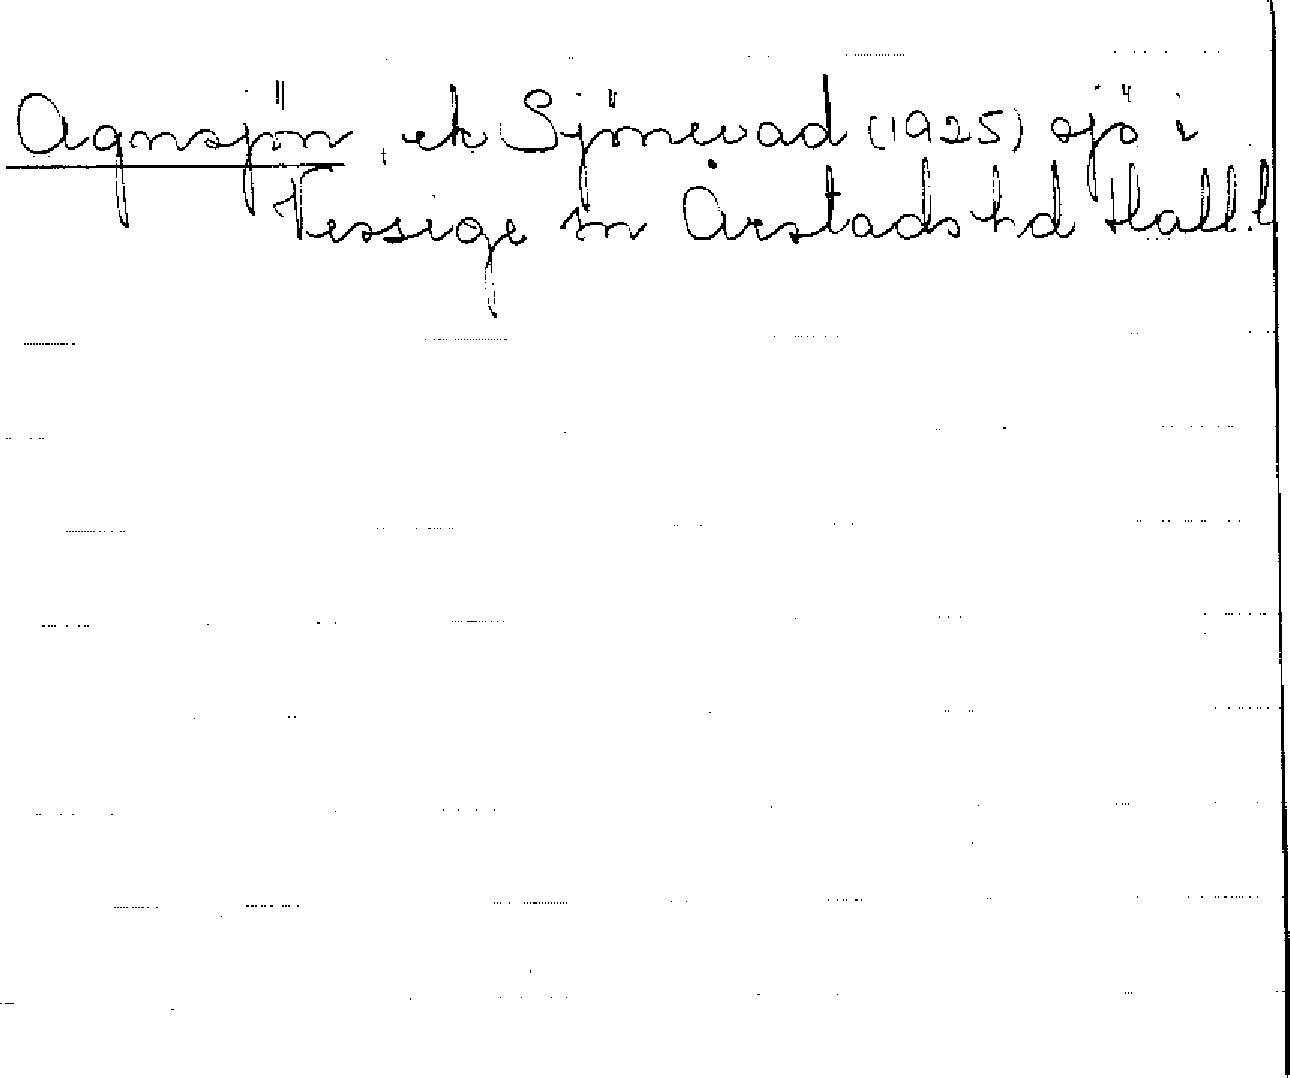 Agnsjön, ek Sjönevad (1925) sjö i
Vessige sn Årstads hd Hall.l